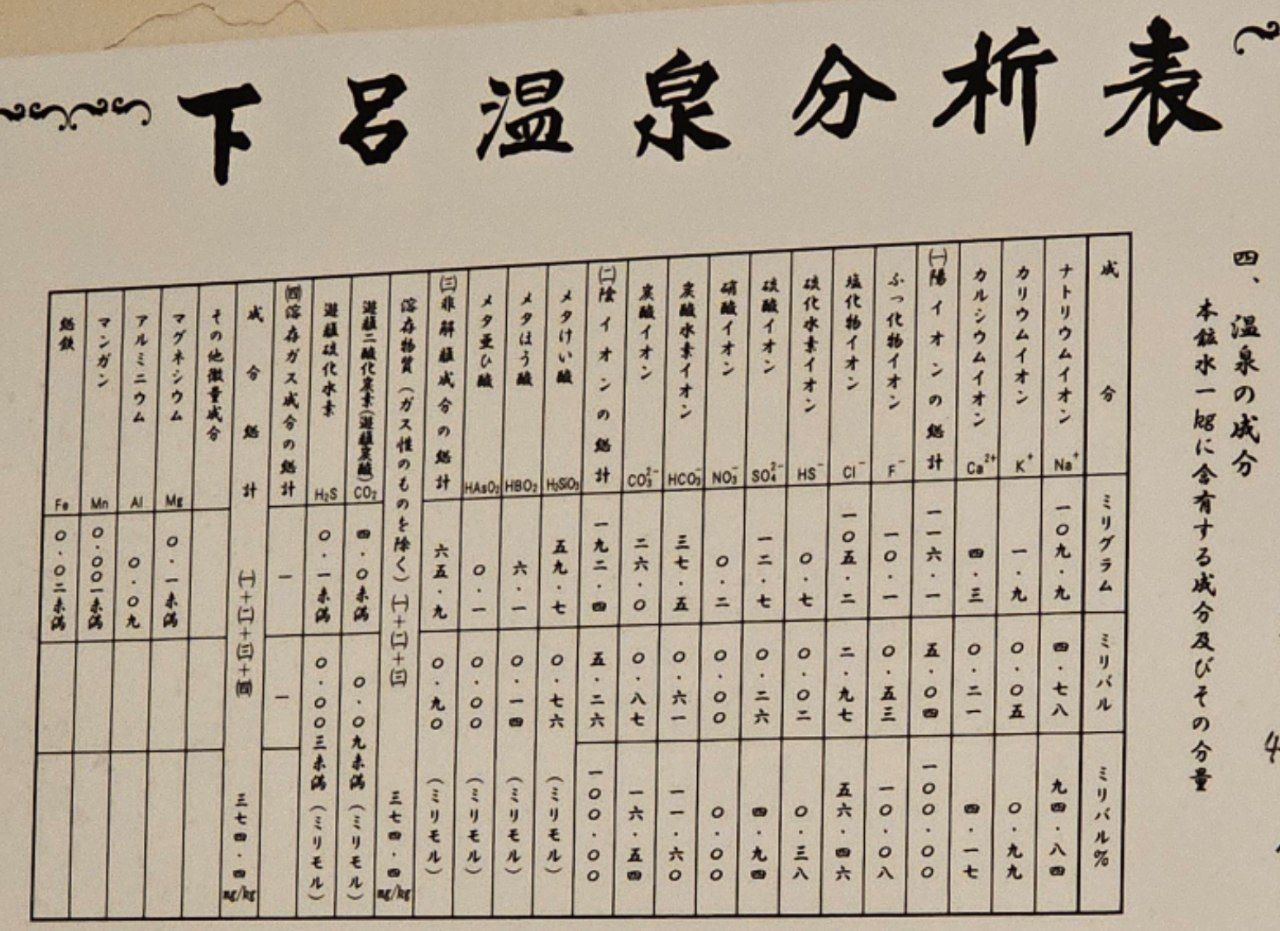 下呂温泉分析表
四、温泉の成分
本鉱水一kgに含有する成分及びその分量
成分 ミリグラム ミリバル ミリバル%
ナトリウムイオン Na⁺ 一〇九・九 四・七八 九四・八四
カリウムイオン K⁺ 一・九 〇・〇五 〇・九九
カルシウムイオン Ca²⁺ 四・三 〇・二一 四・一七
㈠陽イオンの総計 一一六・一 五・〇四 一〇〇・〇〇
ふっ化物イオン F⁻ 一〇・一 〇・五三 一〇・〇八
塩化物イオン Cl⁻ 一〇五・二 二・九七 五六・四六
硫化水素イオン HS⁻ 〇・七 〇・〇二 〇・三八
硫酸イオン SO₄²⁻ 一二・七 〇・二六 四・九四
硝酸イオン NO₃⁻ 〇・二 〇・〇〇 〇・〇〇
炭酸水素イオン HCO₃⁻ 三七・五 〇・六一 一一・六〇
炭酸イオン CO₃²⁻ 二六・〇 〇・八七 一六・五四
㈡陰イオンの総計 一九二・四 五・二六 一〇〇・〇〇
メタけい酸 H₂SiO₃ 五九・七 〇・七六 (ミリモル)
メタほう酸 HBO₂ 六・一 〇・一四 (ミリモル)
メタ亜ひ酸 HAsO₂ 〇・一 〇・〇〇 (ミリモル)
㈢非解離成分の総計 六五・九 〇・九〇 (ミリモル)
溶存物質(ガス性のものを除く)㈠+㈡+㈢ 三七四・四 mg/kg
遊離二酸化炭素(遊離炭酸) CO₂ 四・〇未満 〇・〇九未満(ミリモル)
遊離硫化水素 H₂S 〇・一未満 〇・〇〇三未満(ミリモル)
㈣溶存ガス成分の総計 ー ー
成分総計 ㈠+㈡+㈢+㈣ 三七四・四 mg/kg
その他微量成分
マグネシウム Mg 〇・一未満
アルミニウム Al 〇・〇九
マンガン Mn 〇・〇〇一未満
総鉄 Fe 〇・〇二未満